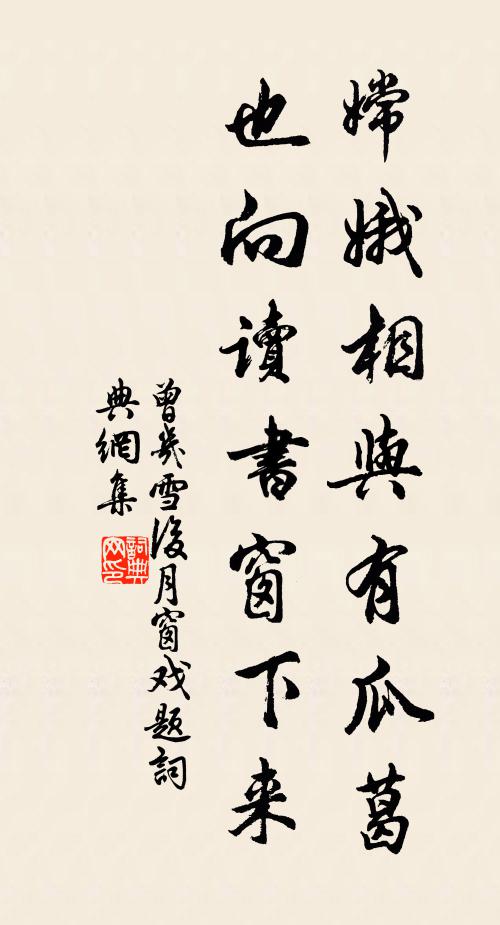 嫦娥相與有瓜葛
也向讀書窗下来
曾幾雪後月窗戏題詞
典網集
詞典網印